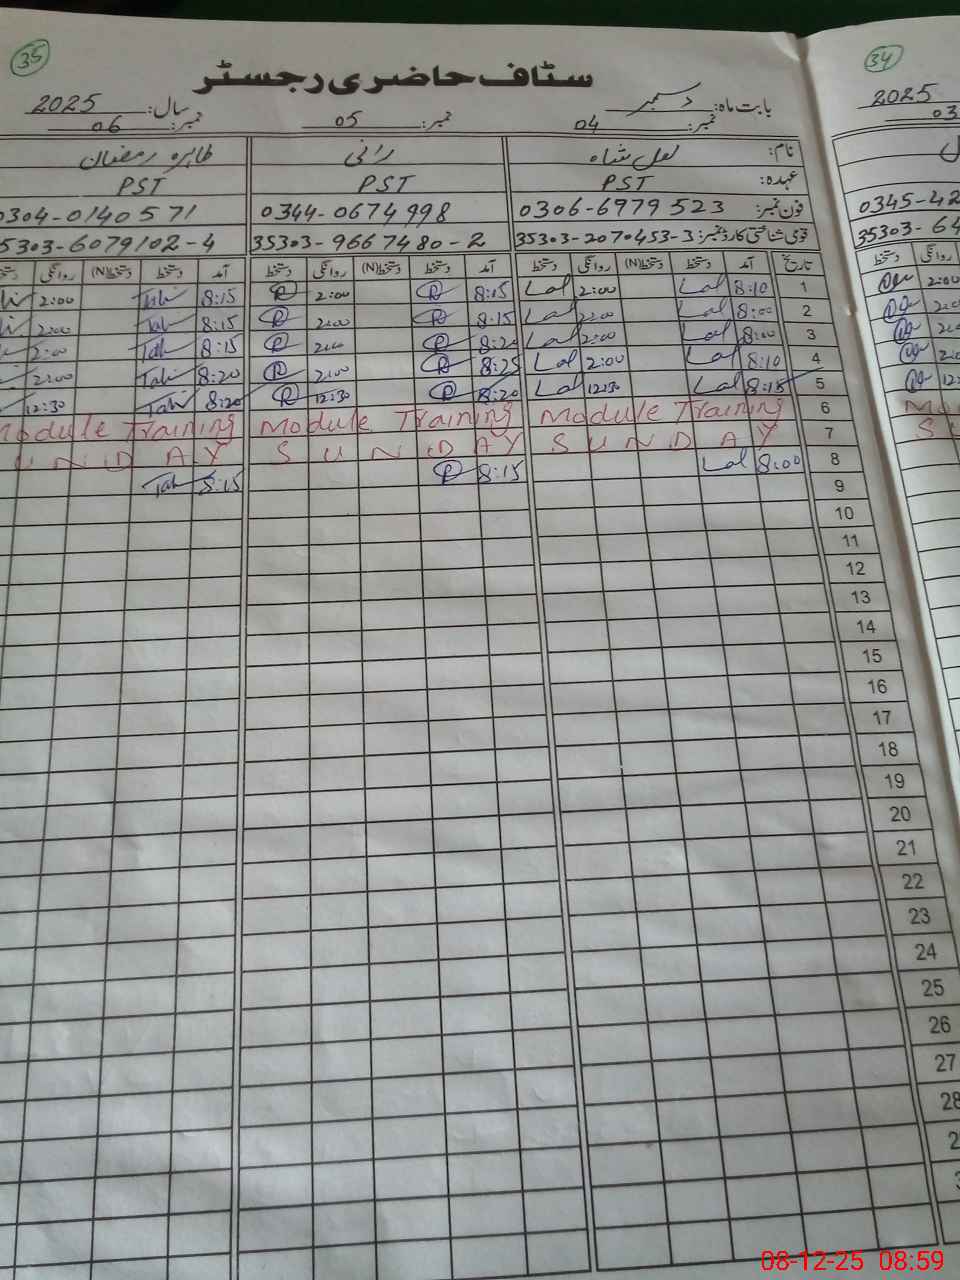 35
34
سٹاف حاضری رجسٹر
بابت ماہ: دسمبر سال: 2025
2025
نمبر: 04 نمبر: 05 نمبر: 06
03
نام: لعل شاہ رانی طاہرہ رمضان
عہدہ: PST PST PST
فون نمبر: 0306-6979523 0344-0674998 0304-0140571
0345-42
قومی شناختی کارڈ نمبر: 35303-2070453-3 35303-9667480-2 35303-6079102-4
35303-64
تاریخ آمد دستخط دستخط(N) روانگی دستخط آمد دستخط روانگی دستخط آمد دستخط دستخط(N) روانگی
دستخط روانگی
1 8:10 Lal 2:00 Lal 8:15 R 2:00 R 8:15 Tah 2:00
2 8:00 Lal 2:00 Lal 8:15 R 2:00 R 8:15 Tah 2:00
3 8:00 Lal 2:00 Lal 8:20 R 2:00 R 8:15 Tah 2:00
4 8:10 Lal 2:00 Lal 8:25 R 2:00 R 8:20 Tah 2:00
5 8:15 Lal 12:30 Lal 8:20 R 12:30 R 8:20 Tah 12:30
6 Module Training Module Training Module Training
7 SUNDAY SUNDAY UNDAY
8 8:00 Lal 8:15 R 8:15 Tah
9
10
11
12
13
14
15
16
17
18
19
20
21
22
23
24
25
26
27
28
08-12-25 08:59